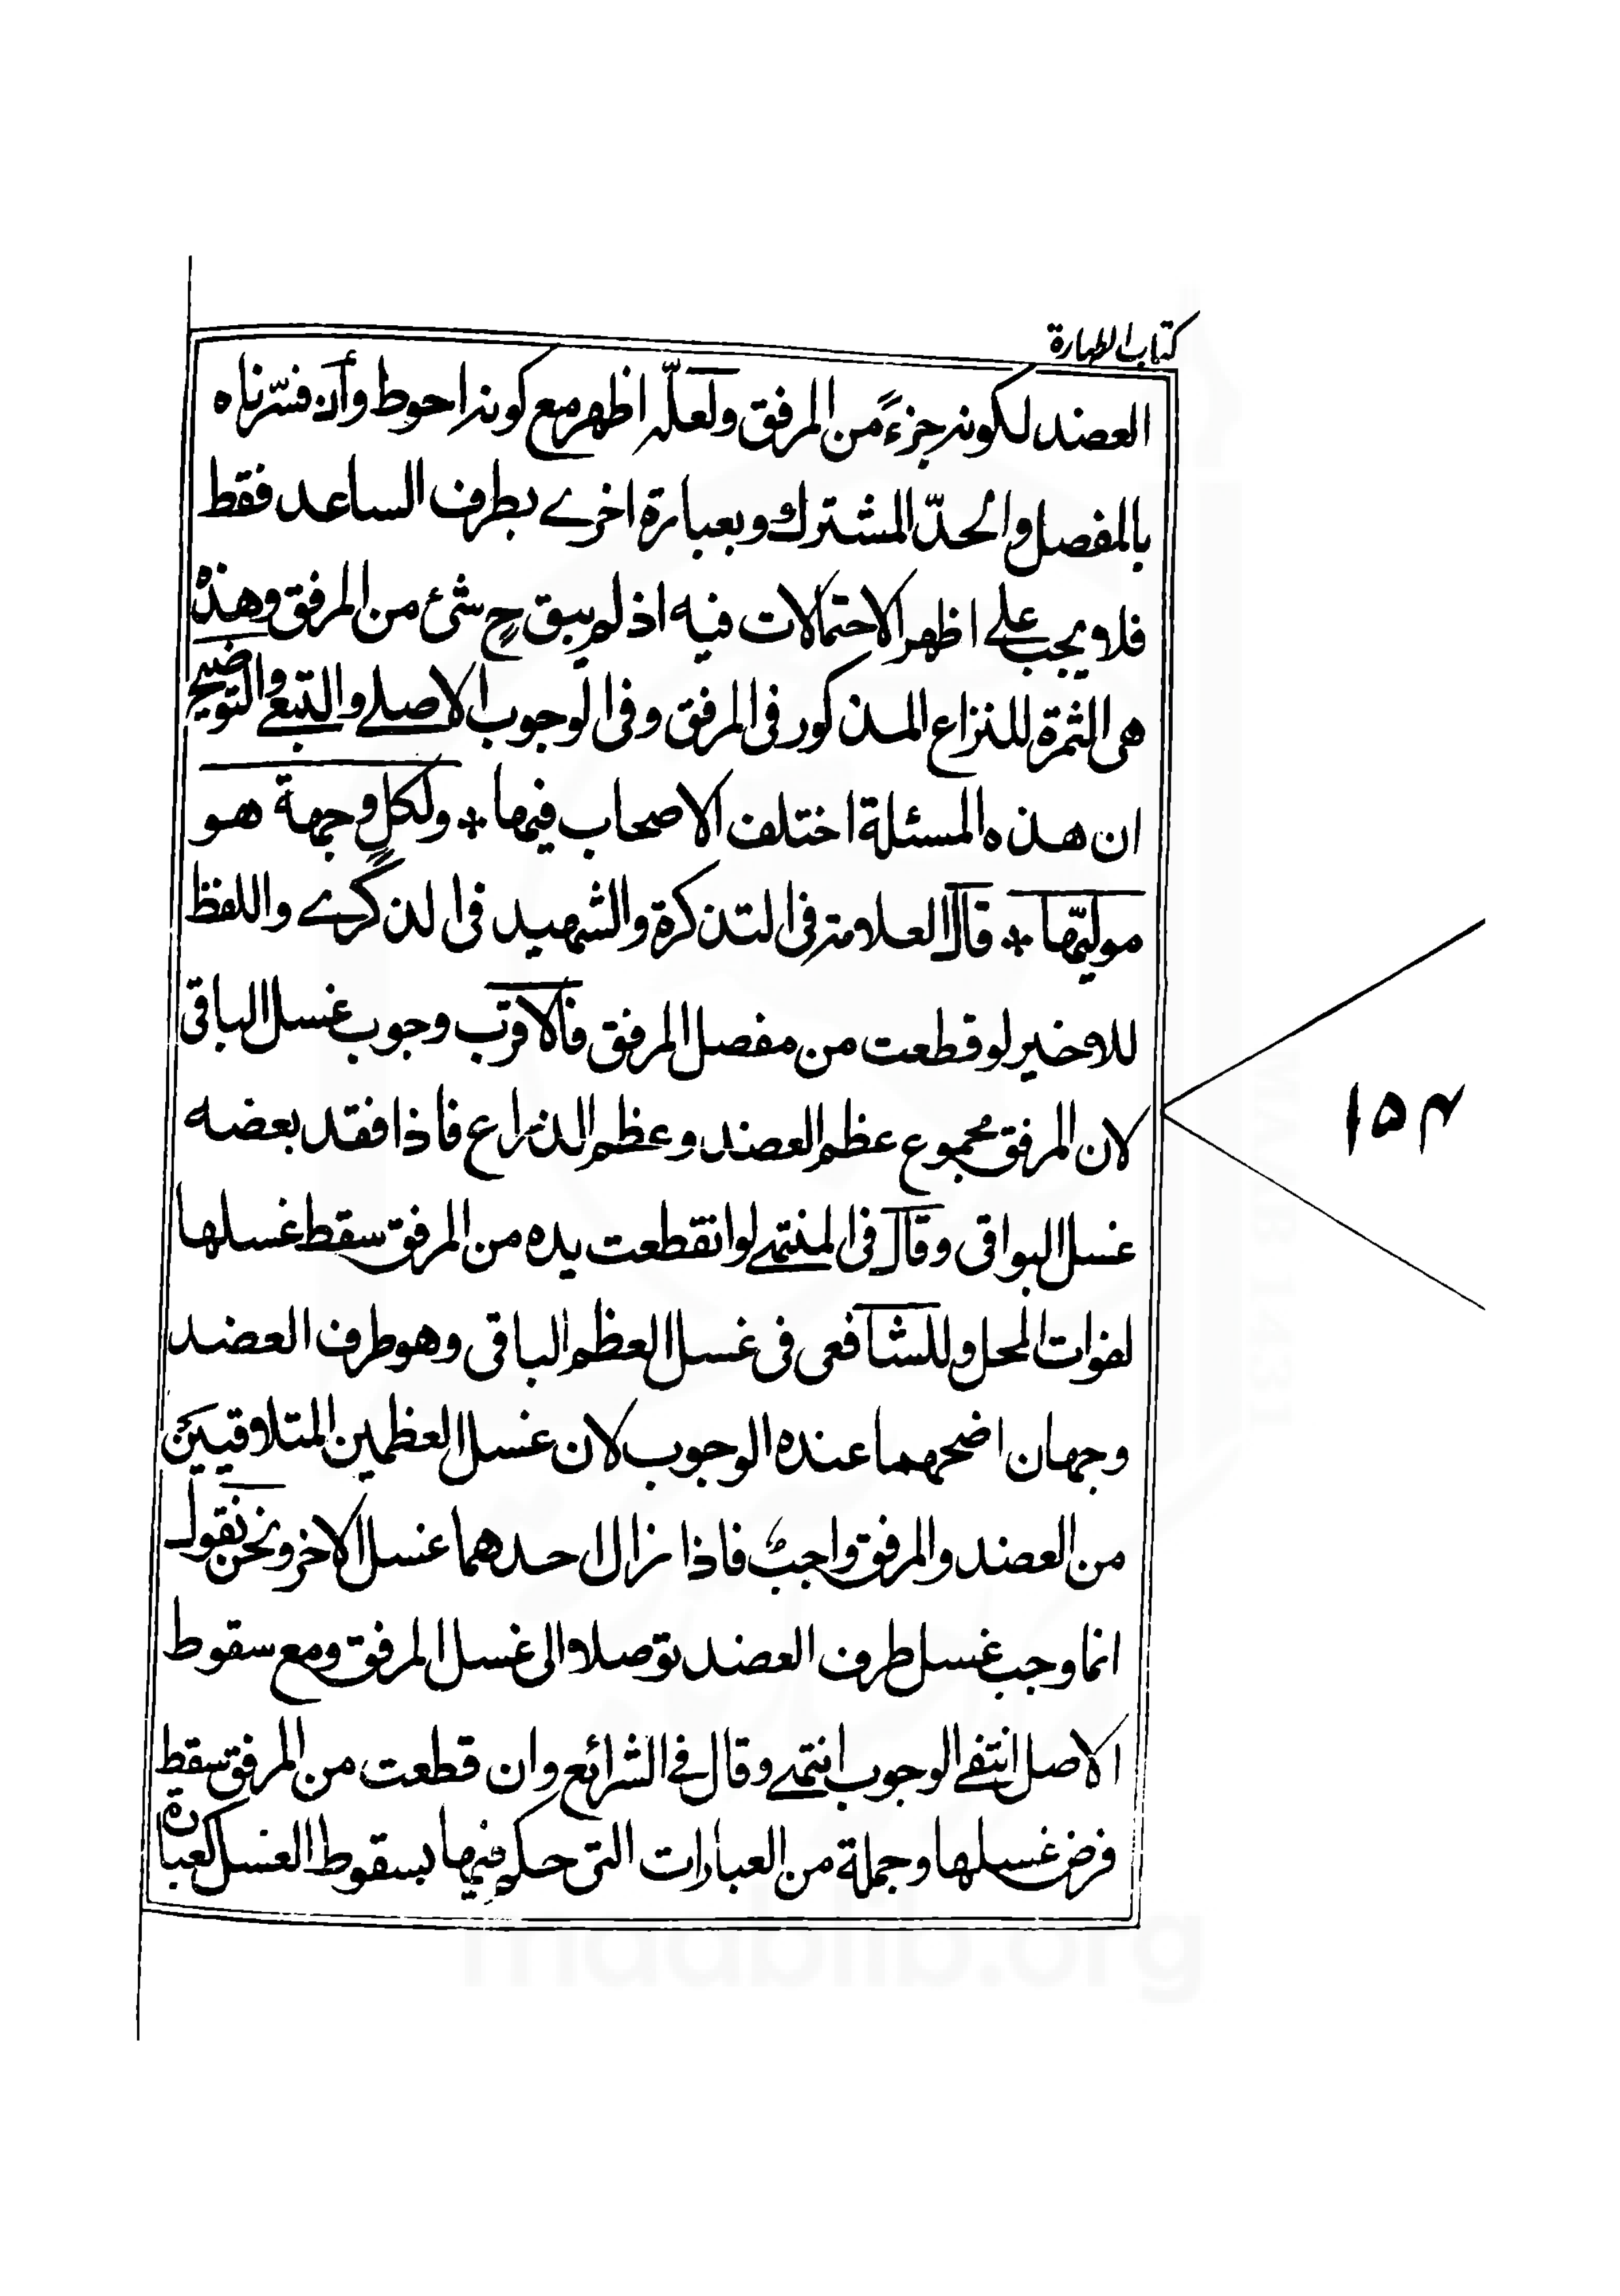 كتاب الطهارة
العضد لكونه جزءً من المرفق ولعلّه اظهر مع كونه احوط وأن فسّرناه
بالمفصل والحدّ المشترك وبعبارة اخرے بطرف الساعد فقط
فلا يجب علے اظهر الاحتمالات فيه اذ لم يبق ح شئ من المرفق وهذه
هى الثمرة للنزاع المذكور فى المرفق وفى الوجوب الاصلے والتبعے والتوضيح
ان هذه المسئلة اختلف الاصحاب فيها * ولكلٍ وجهة هو
موليّها * قال العلامة فى التذكرة والشهيد فى الذكرے واللفظ
للاخير لو قطعت من مفصل المرفق فالاقرب وجوب غسل الباقى
لان المرفق مجموع عظم العضد وعظم الذراع فاذا فقد بعضه
غسل البواقى وقال فى المنتهے لو انقطعت يده من المرفق سقط غسلها
لفوات المحل وللشافعى فى غسل العظم الباقى وهو طرف العضد
وجهان اصحهما عنده الوجوب لان غسل العظمين المتلاقيين
من العضد والمرفق واجبٌ فاذا زال احدهما غسل الاخر ونحن نقول
انما وجب غسل طرف العضد توصلا الى غسل المرفق ومع سقوط
الاصل انتفے الوجوب انتهے وقال فے الشرائع وان قطعت من المرفق سقط
فرض غسلها وجملة من العبارات التى حكم فيها بسقوط الغسل كعبارة
۱۵۴
maablib.org
MAAB 1431